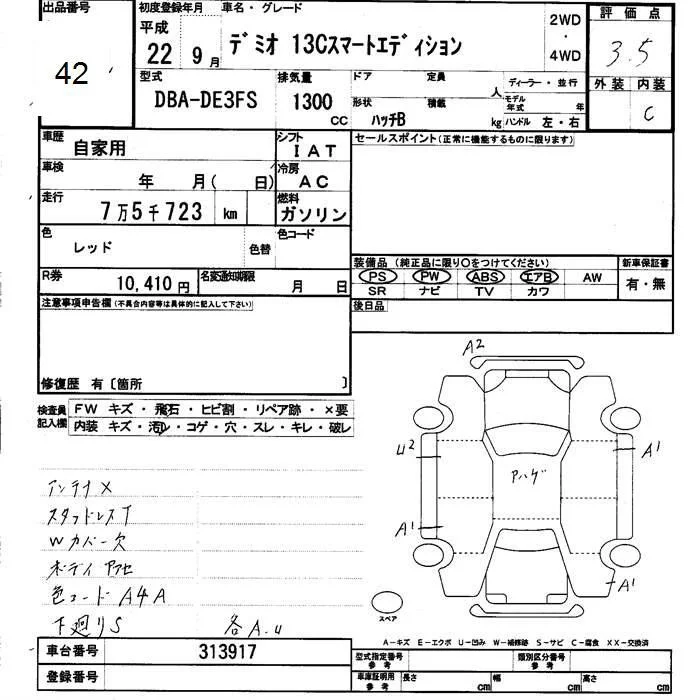 出品番号
42
初度登録年月
平成
22 9 月
車名・グレード
デミオ 13Cスマートエディション
2WD
・
4WD
評価点
3.5
外装 内装
C
型式
DBA-DE3FS
排気量
1300
CC
ドア 定員
人
形状 積載
ハッチB
kg
ディーラー・並行
モデル年式 年
ハンドル 左・右
車歴
自家用
シフト
IAT
セールスポイント(正常に機能するものに限ります)
車検
年 月( 日)
冷房
AC
走行
7万5千723 km
燃料
ガソリン
色
レッド
色替
色コード
装備品 (純正品に限り○をつけてください)
PS PW ABS エアB AW
SR ナビ TV カワ
新車保証書
有・無
R券
10,410円
名変通知期限
月 日
後日品
注意事項申告欄(不具合内容等は具体的に記入して下さい)
修復歴 有〔箇所 〕
検査員記入欄
FW キズ・飛石・ヒビ割・リペア跡・×要
内装 キズ・汚レ・コゲ・穴・スレ・キレ・破レ
アンテナ×
スタッドレスT
Wカバー欠
ボディ アセ
色コード A4A
下廻りS 各A.U
A2
U2
A1
アハゲ
A1
A1
スペア
A-キズ E-エクボ U-凹み W-補修跡 S-サビ C-腐食 XX-交換済
車台番号 313917
登録番号
型式指定番号
参考
類別区分番号
参考
車庫証明用
参考
長さ cm 幅 cm 高さ cm